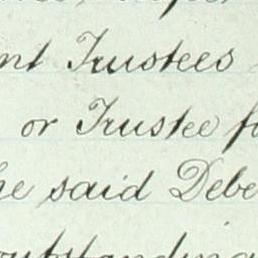 nt Trustees
or Trustee fo
he said Debe
outstanding